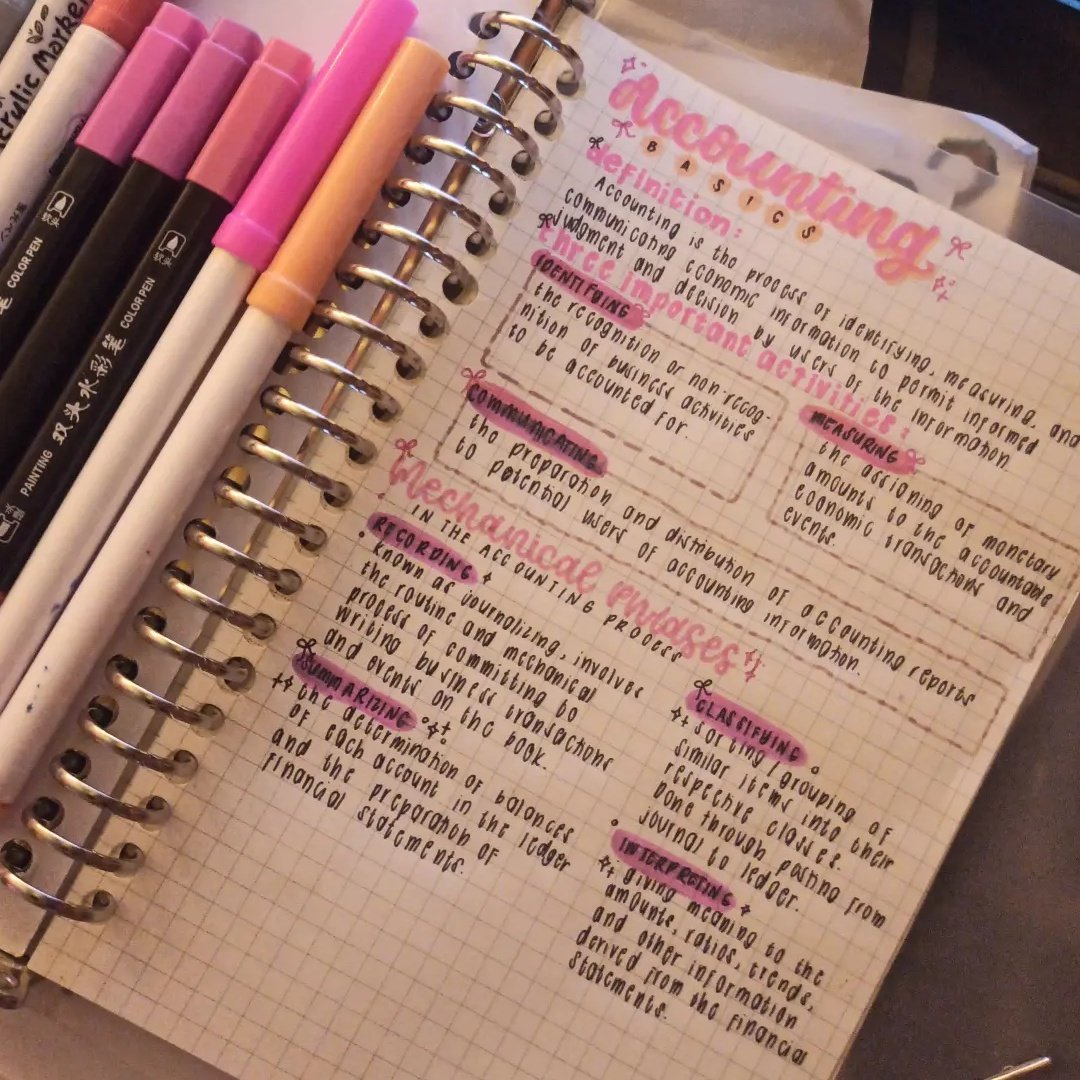 Acrylic Marker
COLOR PEN
COLOR PEN
PAINTING 双头水彩笔 COLOR PEN
软头
软头
Accounting
BASICS
definition:
Accounting is the process of identifying, measuring, and
communicating economic information to permit informed
judgment and decision by users of the information.
three important activities:
IDENTIFYING
the recognition or non-recog-
nition of business activities
to be accounted for.
MEASURING
the assigning of monetary
amounts to the accountable
economic transactions and
events.
COMMUNICATING
the preparation and distribution of accounting reports
to potential users of accounting information.
Mechanical phrases
IN THE ACCOUNTING PROCESS
RECORDING
• known as journalizing, involves
the routine and mechanical
process of committing to
writing business transactions
and events on the book.
CLASSIFYING
sorting/grouping of
similar items into their
respective classes.
Done through posting from
journal to ledger.
SUMMARIZING
the determination of balances
of each account in the ledger
and the preparation of
financial statements.
INTERPRETING
giving meaning to the
amounts, ratios, trends,
and other information
derived from the financial
statements.